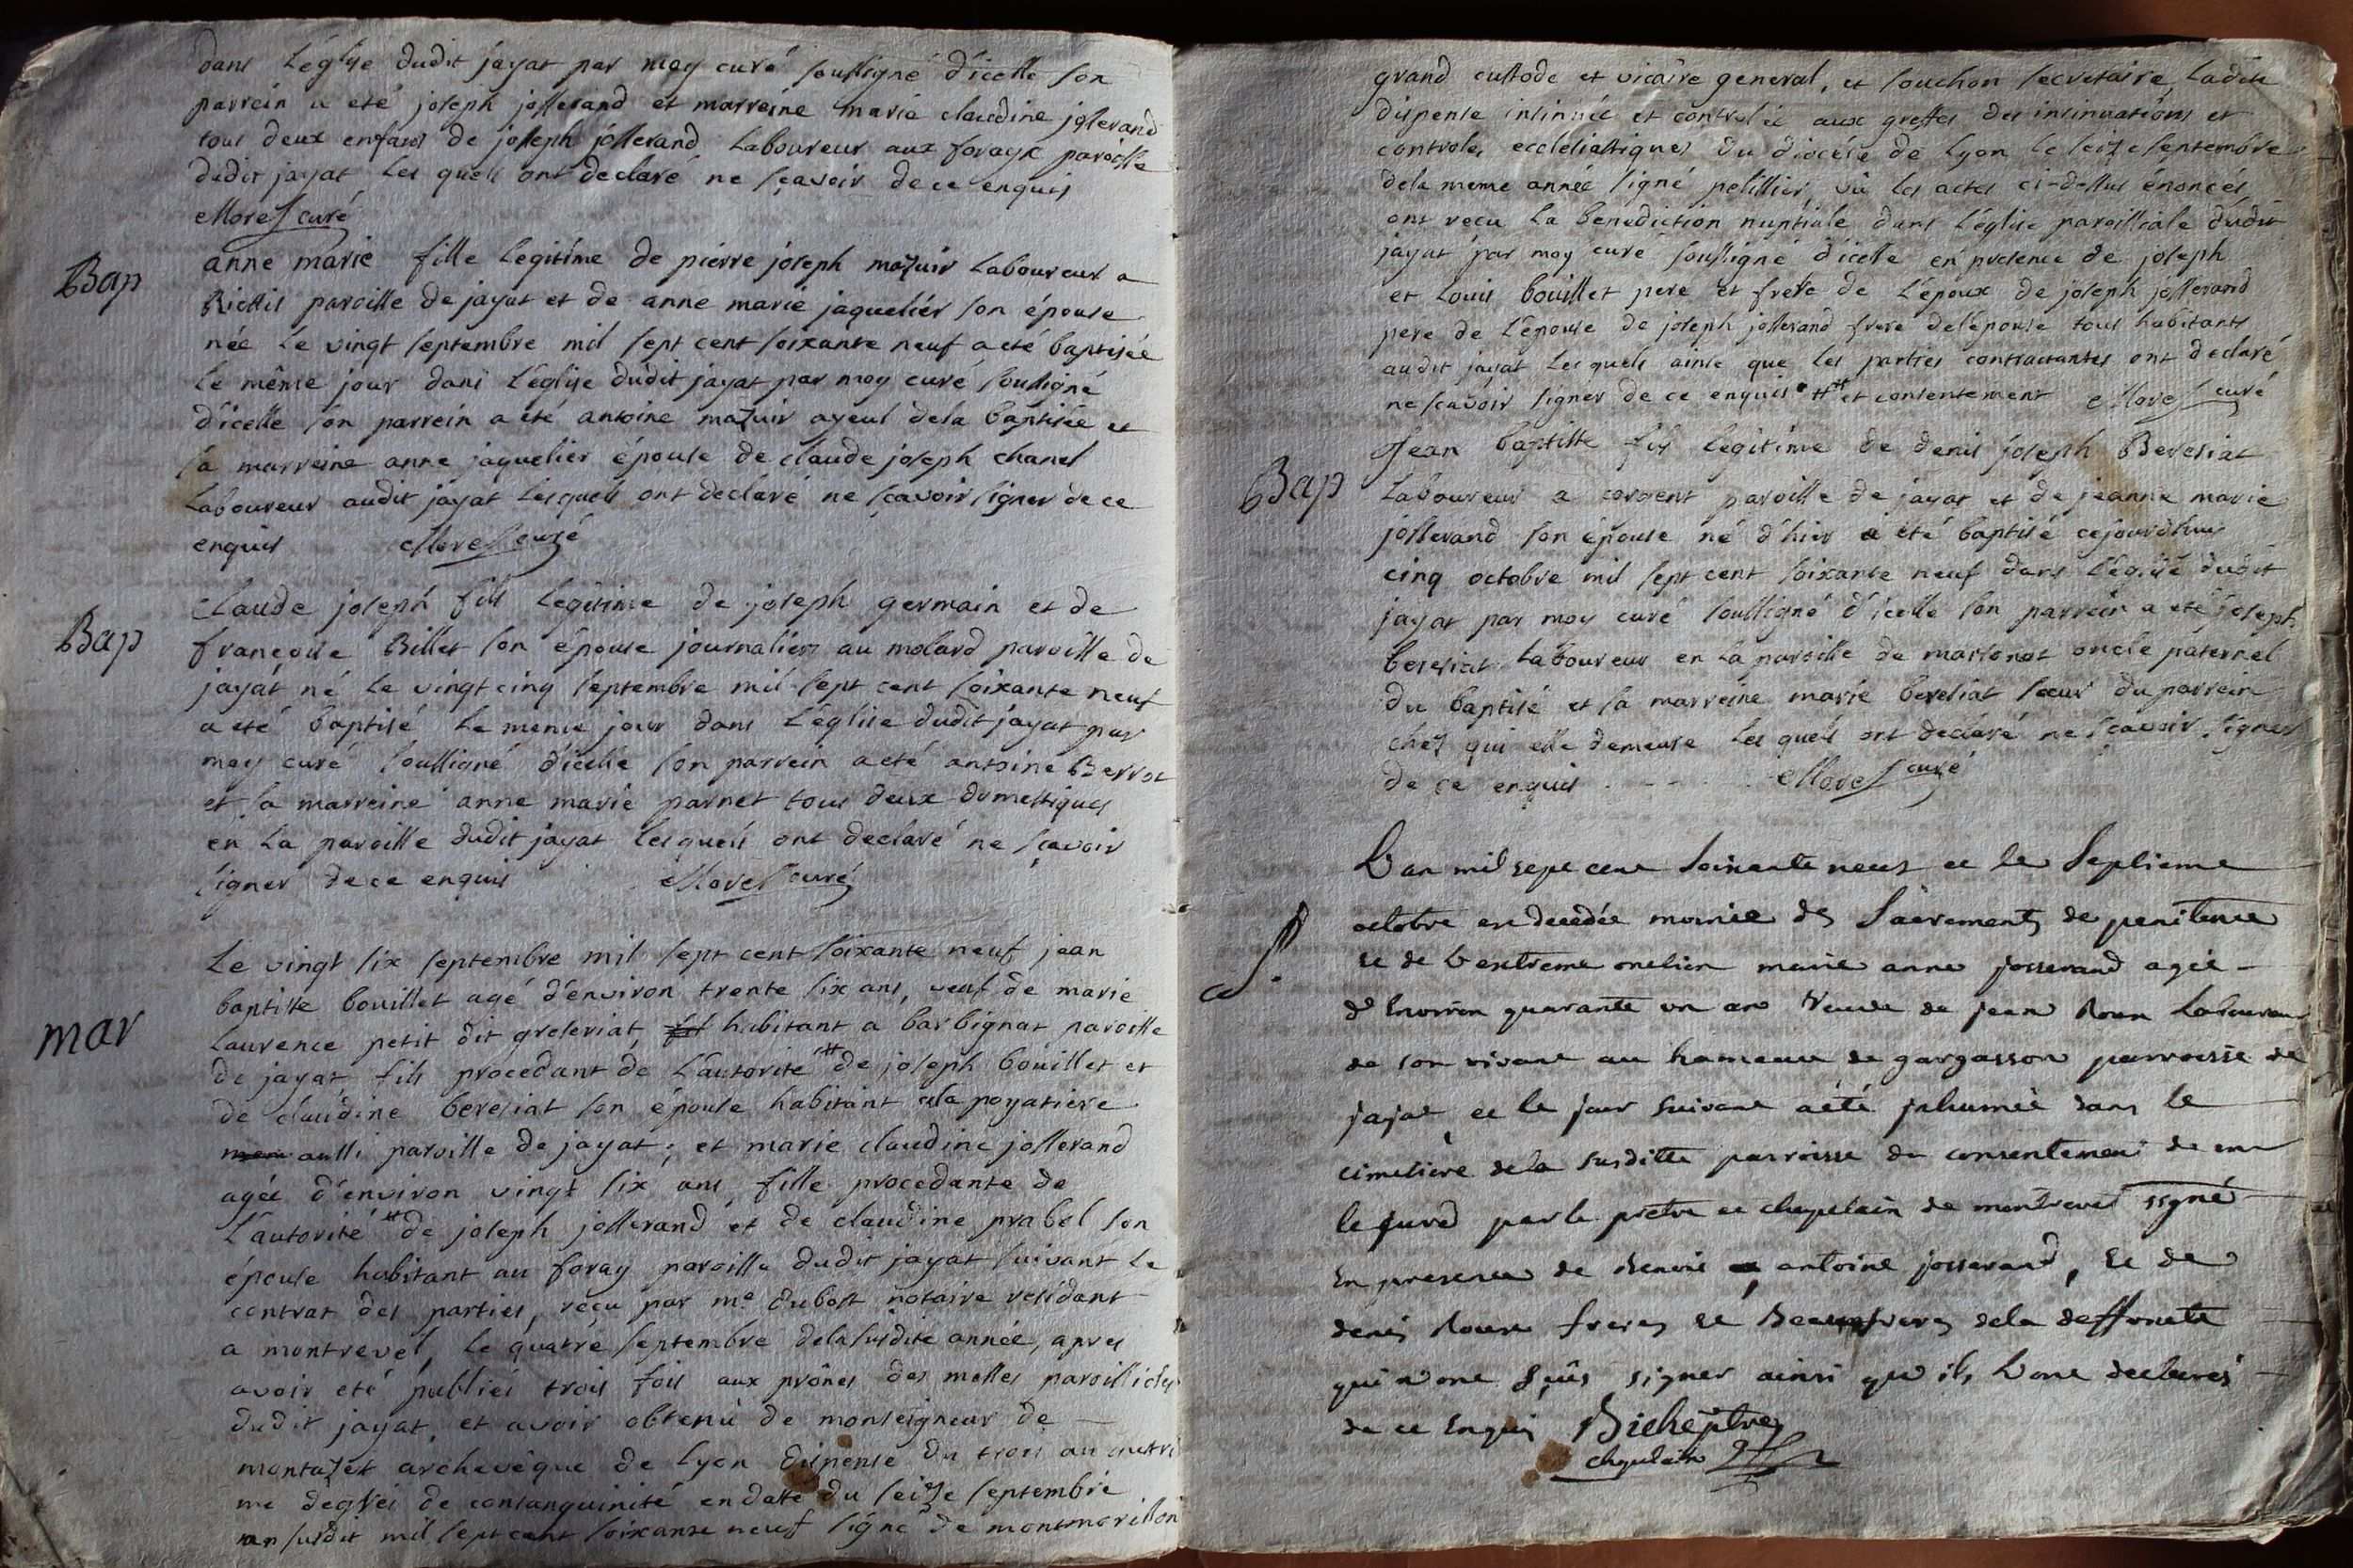 dans L'église dudit jayat par moy curé soussigné d'icelle son
parrein a eté joseph josserand et marreine marie claudine josserand
tous deux enfans de joseph josserand Laboureur aux forays paroisse
dudit jayat Les quels ont declaré ne sçavoir de ce enquis
Morel curé
Bap
anne marie fille legitime de pierre joseph mazuir Laboureur a
paroisse de jayat et de anne marie jaquelier son épouse
née Le vingt septembre mil sept cent soixante neuf a eté baptisée
Le même jour dans L'église dudit jayat par moy curé soussigné
d'icelle son parrein a eté antoine mazuir ayeul dela baptisée et
sa marreine anne jaquelier épouse de claude joseph chanel
Laboureur audit jayat Lesquels ont declaré ne sçavoir signer de ce
enquis Morel curé
Bap
Claude joseph fils Legitime de joseph germain et de
françoise Billet son épouse journaliers au molard paroisse de
jayat né Le vingt cinq septembre mil sept cent soixante neuf
a eté baptisé Le meme jour dans L'église dudit jayat par
moy curé soussigné d'icelle son parrein a eté antoine Berrot
et sa marreine anne marie parnet tous deux domestiques
en La paroisse dudit jayat Lesquels ont declaré ne sçavoir
signer de ce enquis Morel curé
mar
Le vingt six septembre mil sept cent soixante neuf jean
baptiste bouillet agé d'environ trente six ans, veuf de marie
Laurence petit dit greleriat, fil habitant a barbignat paroisse
de jayat fils procedant de L'autorité # de joseph bouillet et
de claudine bereziat son épouse habitant ala poyatiere
mem aussi paroisse de jayat; et marie claudine josserand
agée d'environ vingt six ans fille procedante de
L'autorité # de joseph josserand et de claudine prabel son
épouse habitant au foray paroisse dudit jayat suivant Le
contrat des parties, reçu par me dubost notaire residant
a montrevel, Le quatre septembre dela susdite année, apres
avoir eté publiés trois fois aux prônes des messes paroissiales
dudit jayat, et avoir obtenû de monseigneur de
montazet archevêque de Lyon dispense du trois au quatrie
me degrés de consanguinité en date du seize septembre
an susdit mil sept cent soixante neuf signé de montmorillon
grand custode et vicaire general, et souchon secretaire, Ladite
dispense insinuée et controlée aux greffes des insinuations et
controles ecclesiastiques du diocése de Lyon Le seize septembre
dela meme année signé petillier, vû Les actes ci-dessus énoncés
ont reçu La benediction nuptiale dans L'église paroissiale dudit
jayat par moy curé soussigné d'icelle en presence de joseph
et Louis bouillet pere et frere de L'époux de joseph josserand
pere de L'epouse de joseph josserand frere del'epouse tous habitants
audit jayat Lesquels ainsi que Les parties contractantes ont declaré
ne sçavoir signer de ce enquis # et consentement Morel curé
Bap
Jean baptiste fils legitime de denis joseph Bereziat
Laboureur a paroisse de jayat et de jeanne marie
josserand son épouse né d'hier a eté baptisé cejourdhui
cinq octobre mil sept cent soixante neuf dans L'église dudit
jayat par moy curé soussigné d'icelle son parrein a eté joseph
bereziat Laboureur en La paroisse de marsonat oncle paternel
du baptisé et sa marreine marie bereziat sœur du parrein
chez qui elle demeure Les quels ont declaré ne sçavoir signer
de ce enquis Morel curé
S.
L'an mil sept cent soixante neuf et le septieme
octobre est decedée munie des Sacrements de penitence
et de l'extreme onction marie anne josserand agée
d'Environ quarante un an veuve de jean Roux Laboureur
de son vivant au hameau de gargasson parroisse de
jajat et le jour suivant a été jnhumée dans le
cimetiere dela susditte parroisse du consentement de
le curé par le pretre et chapelain de montrevel signé
En presence de Benoit et antoine josserand, et de
denis Roux freres et Beaufreres dela deffunte
qui n'ont sçûs signer ainsi qu'ils L'ont declarés
de ce Enquis Bichet ptre
chapelain